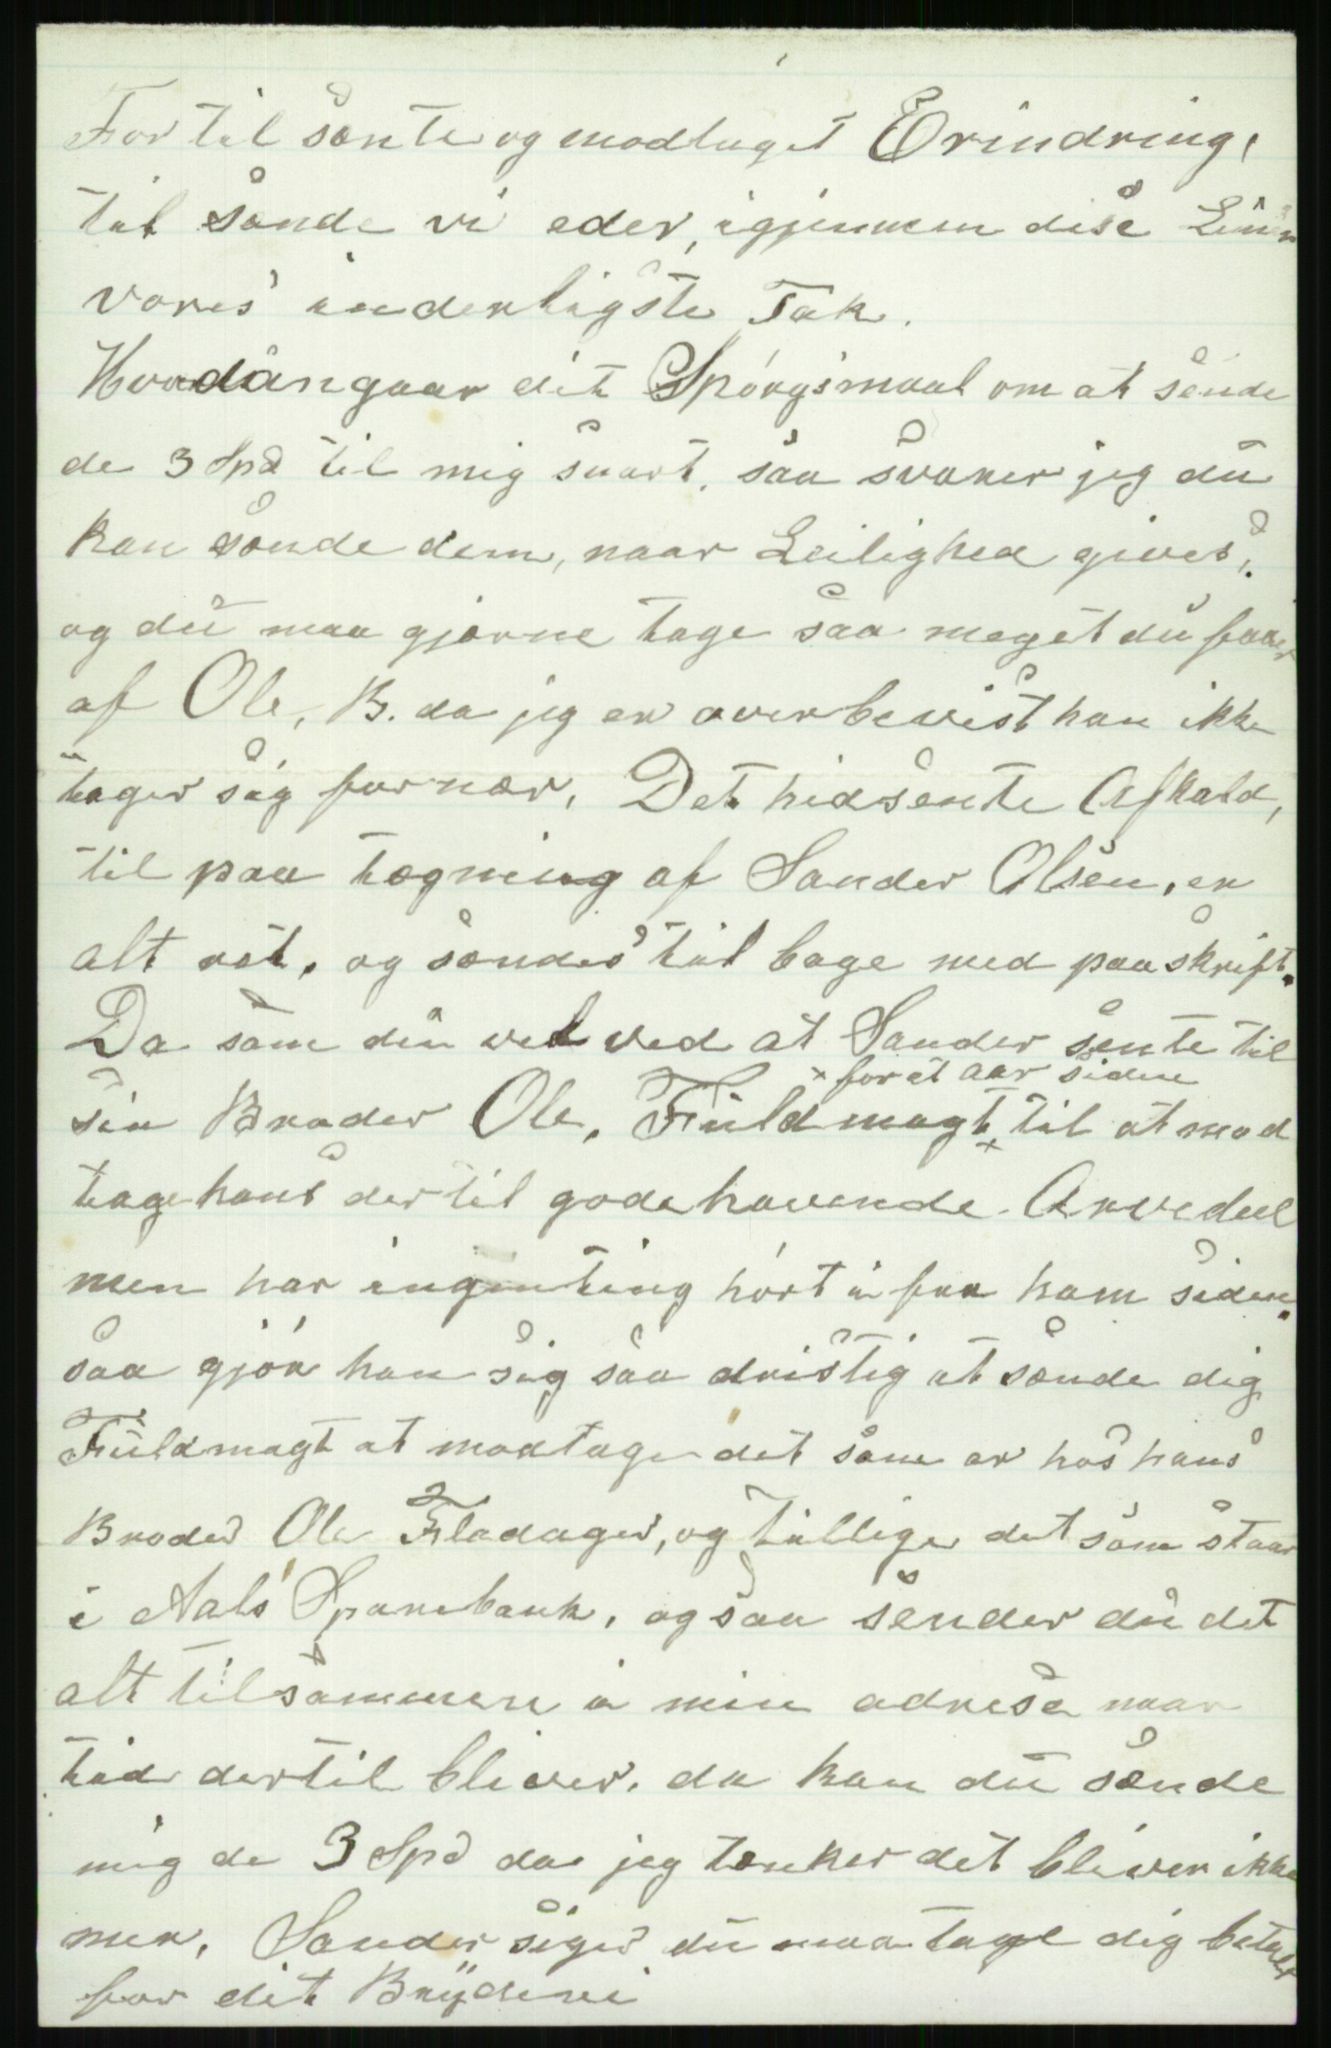 For til sente og modtaget Erindring,
til sænde vi eder, igjennem dise Linier
vores inderligste Tak.
Hvadangaar dit Spörgsmaal om at sende
de 3 Spd til mig snart, saa svarer jeg du
kan sende dem, naar Leilighed gives,
og du maa gjærne tage saa meget du faaer
af Ole, B. da jeg er overbevist han ikke
tager sig for nær, Det hidsente Afkald,
til paa tegning af Sander Olsen, er
alt ret, og sendes til bage med paaskrift.
Da som du vel ved at Sander sente til
sin Broder Ole, Fuldmagt x til at mod
x for et aar siden
tage hans der til gode havende Arvedeel
men har ingenting hört i fra ham siden.
saa gjör han sig saa dristig at sænde dig
Fuldmagt at modtage det som er hos hans
Broder Ole Fladager, og tillige det som staar
i Aals Sparebank, og saa sender du det
alt tilsammen i min adrese naar
tid dertil bliver, da kan du sænde
mig de 3 Spd da jeg tænker det bliver ikke
mer, Sander siger du maa tage dig betalt
for dit Bryderi